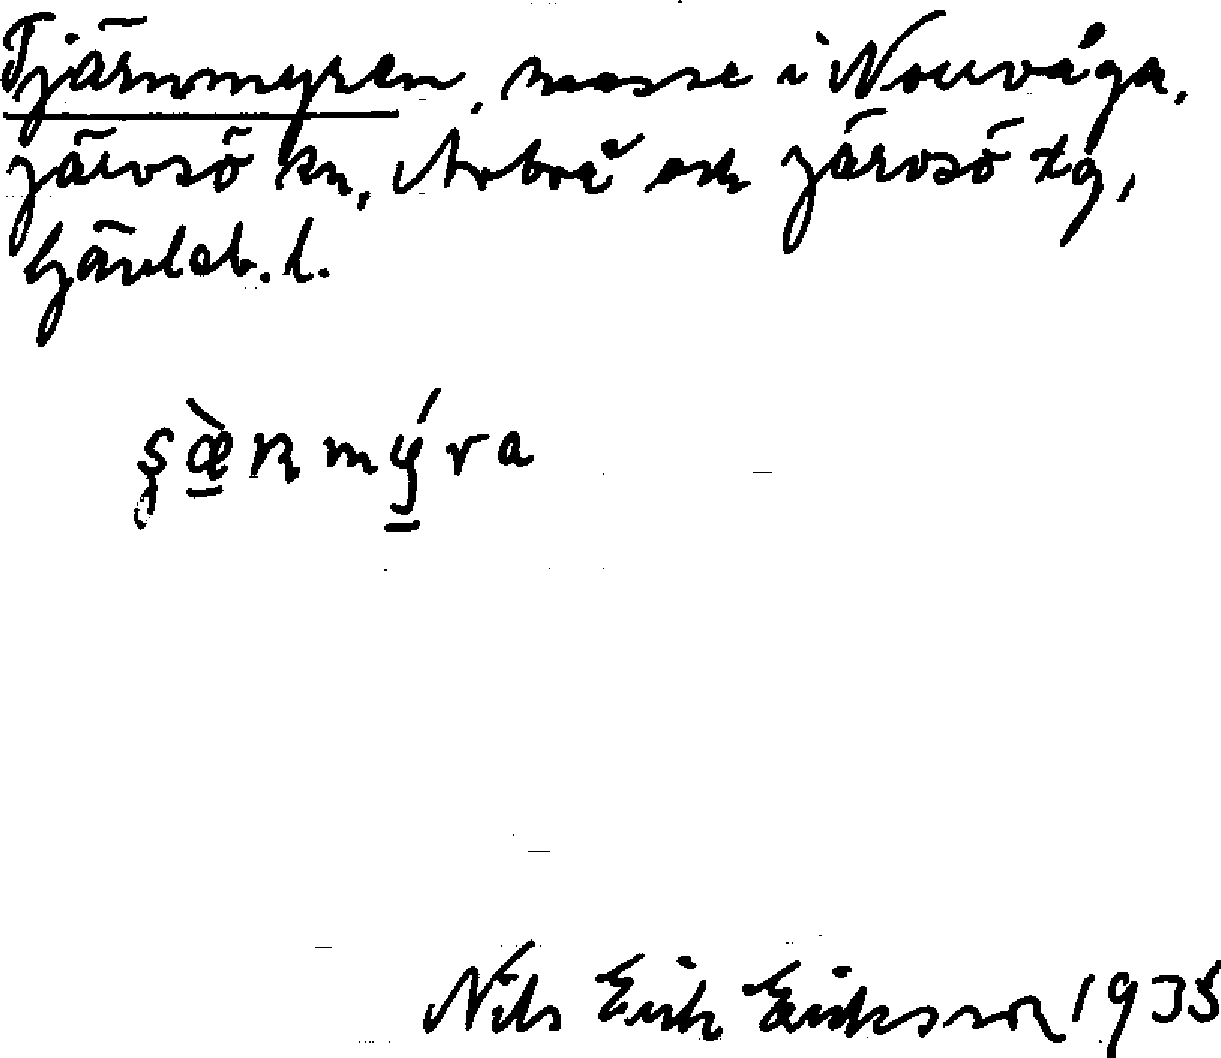 Tjärnmyren, mosse i Norrvåga,
Järvsö sn, Arbrå och Järvsö tg,
Gävleb. l.
Nils Erik Eriksson 1935